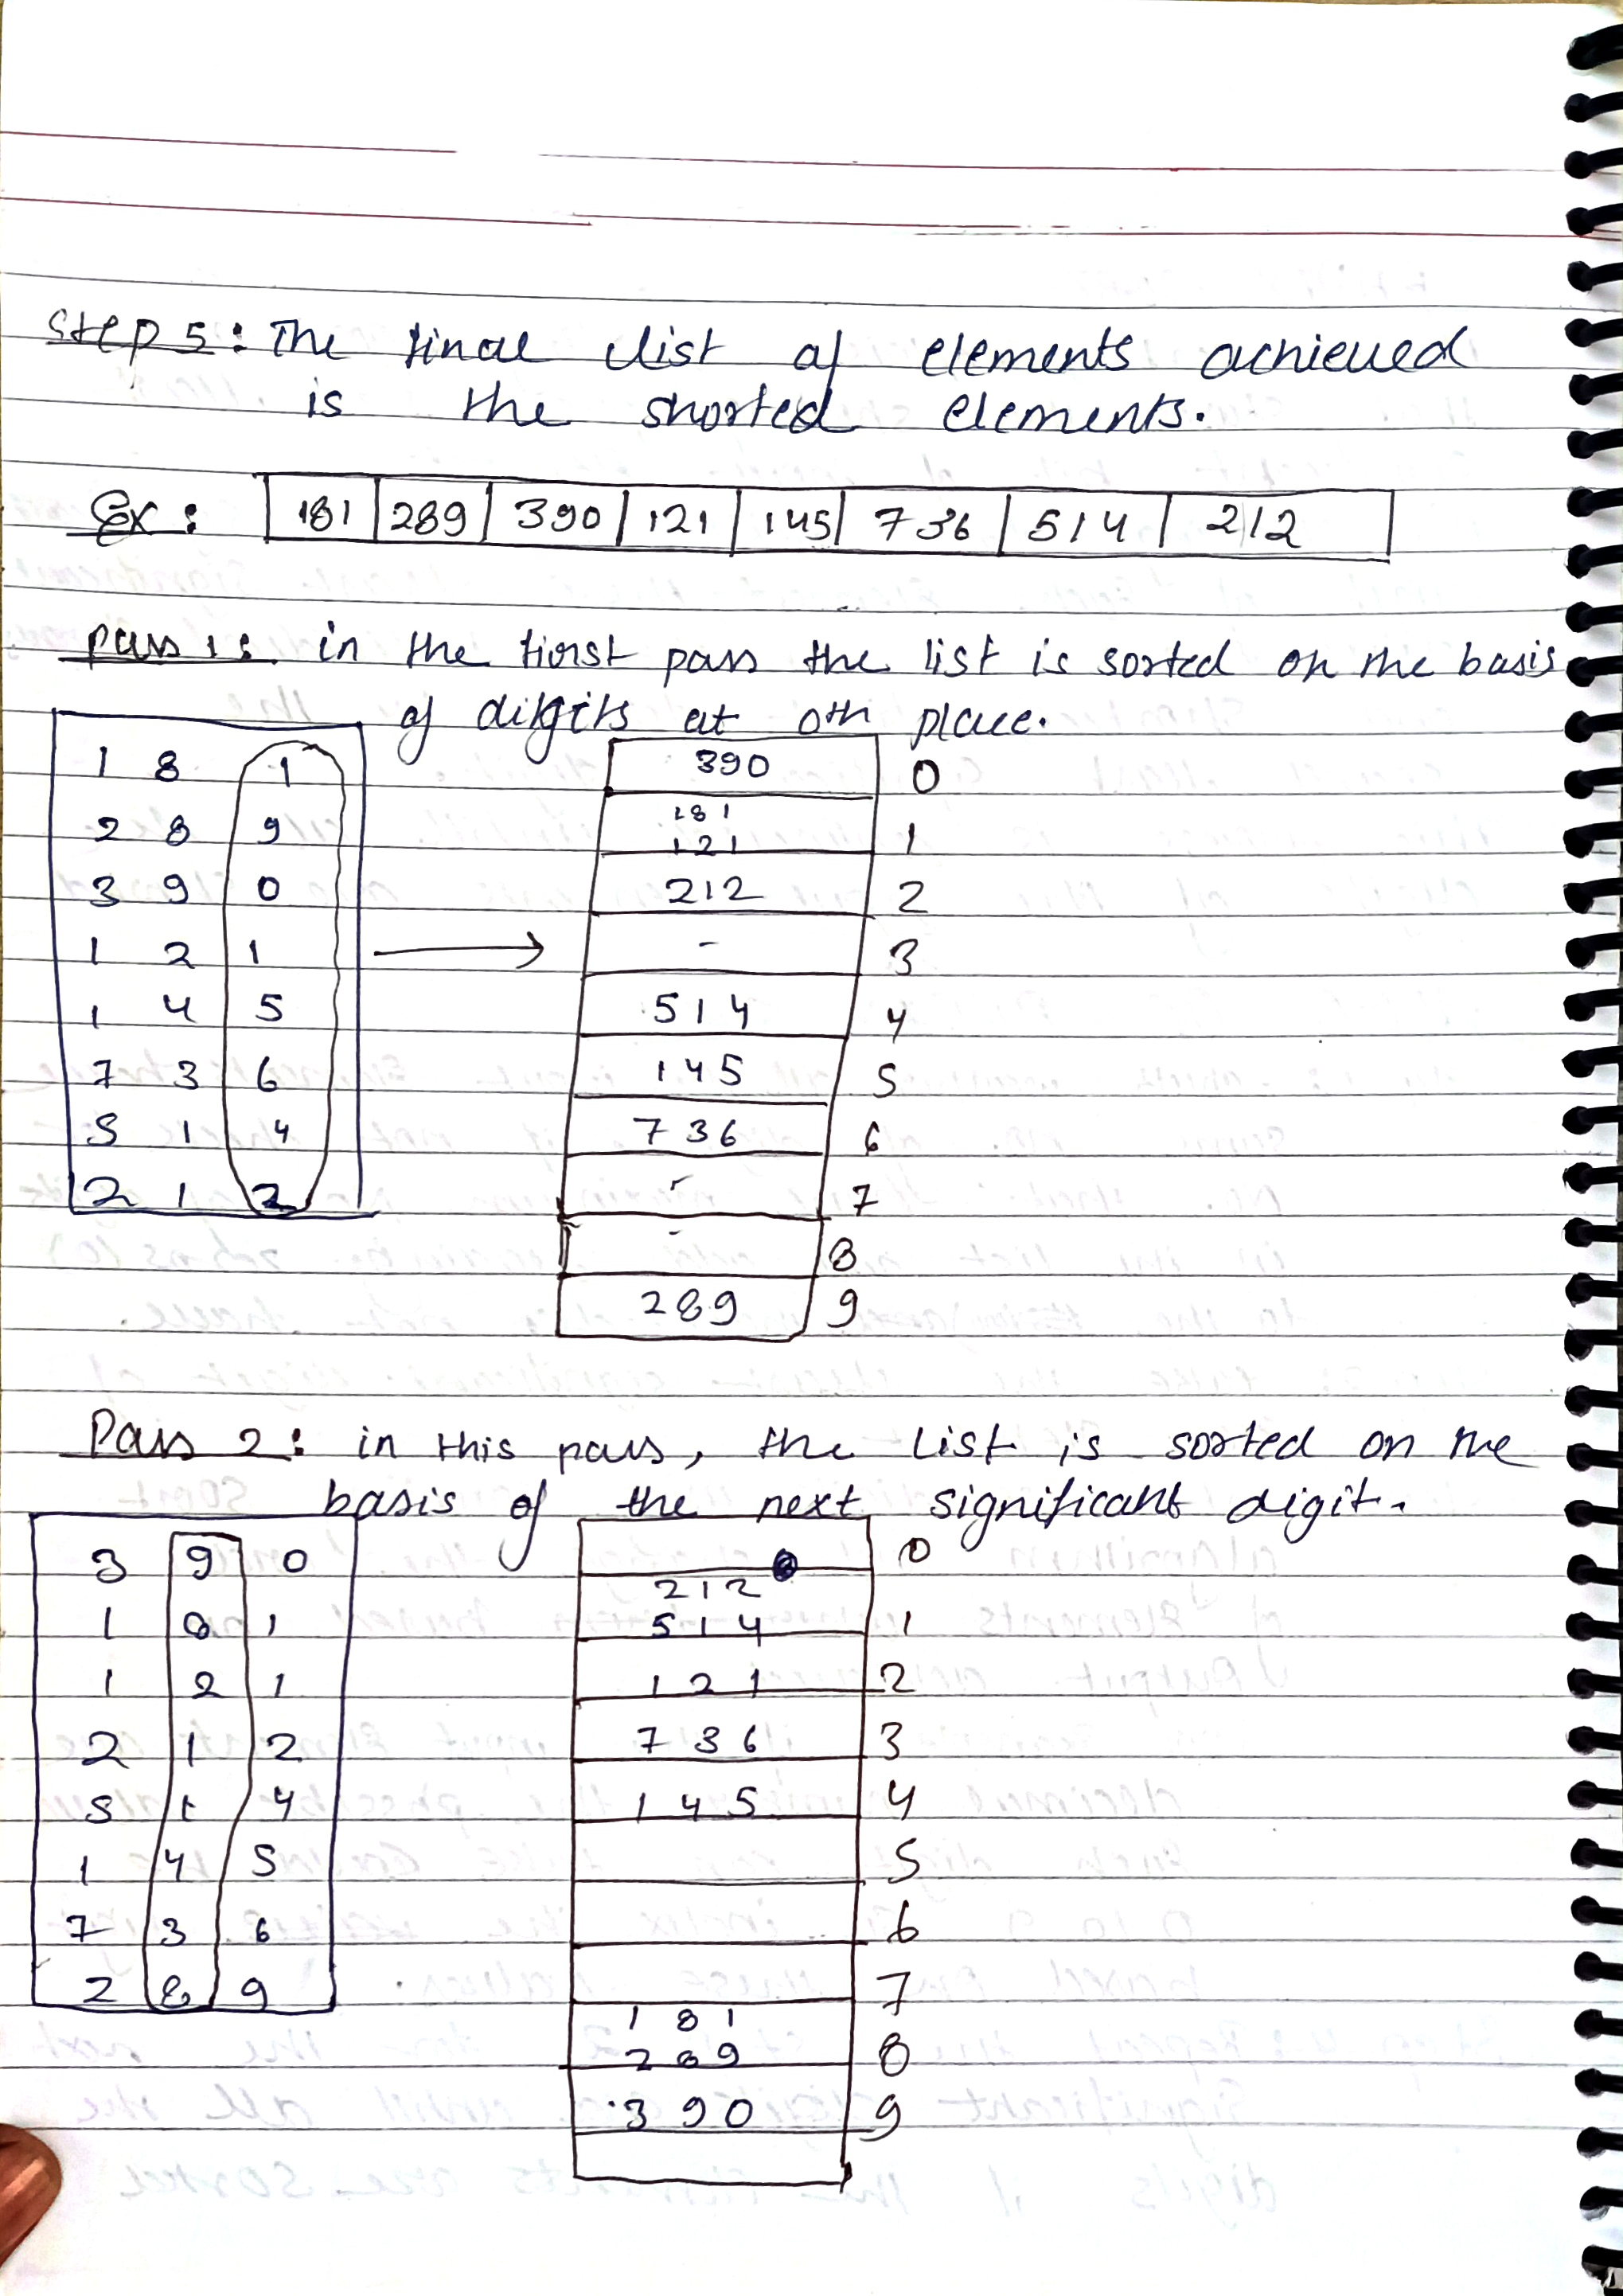 Step 5: The final list of elements achieved
is the shorted elements.
Ex: 181 289 390 121 145 736 514 212
pass 1: in the first pass the list is sorted on the basis
of digits at 0th place.
1 8 1
2 8 9
3 9 0
1 2 1
1 4 5
7 3 6
5 1 4
2 1 2
390 0
181
121 1
212 2
- 3
514 4
145 5
736 6
- 7
- 8
289 9
Pass 2: in this pass, the list is sorted on the
basis of the next significant digit.
3 9 0
1 8 1
1 2 1
2 1 2
5 1 4
1 4 5
7 3 6
2 8 9
0
212
514 1
121 2
736 3
145 4
5
6
7
181
289 8
390 9